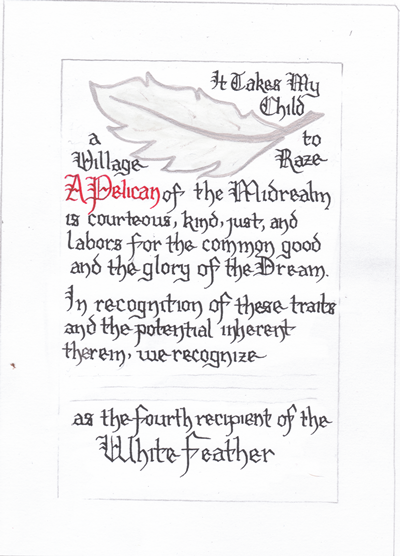 It Takes My
Child
a to
Village Raze
A Pelican of the Midrealm
is courteous, kind, just, and
labors for the common good
and the glory of the Dream.
In recognition of these traits
and the potential inherent
therein, we recognize
as the fourth recipient of the
White Feather